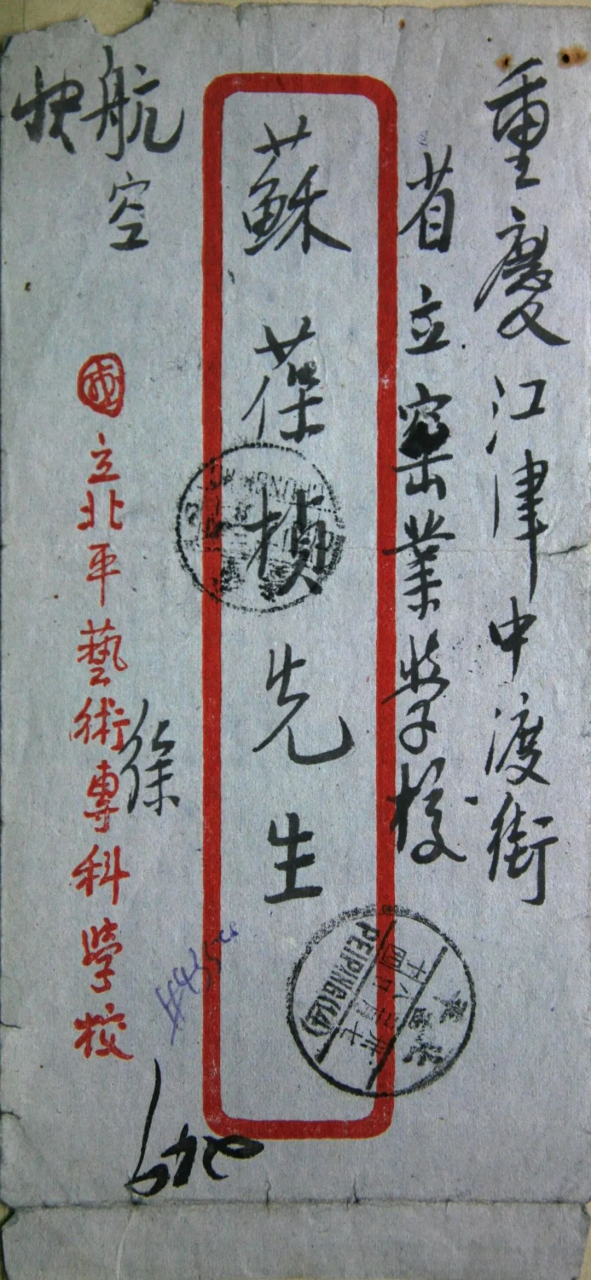 重慶江津中渡街
省立窯業學校
蘇葆楨先生
航空
快
國立北平藝術專科學校
徐
PEIPING